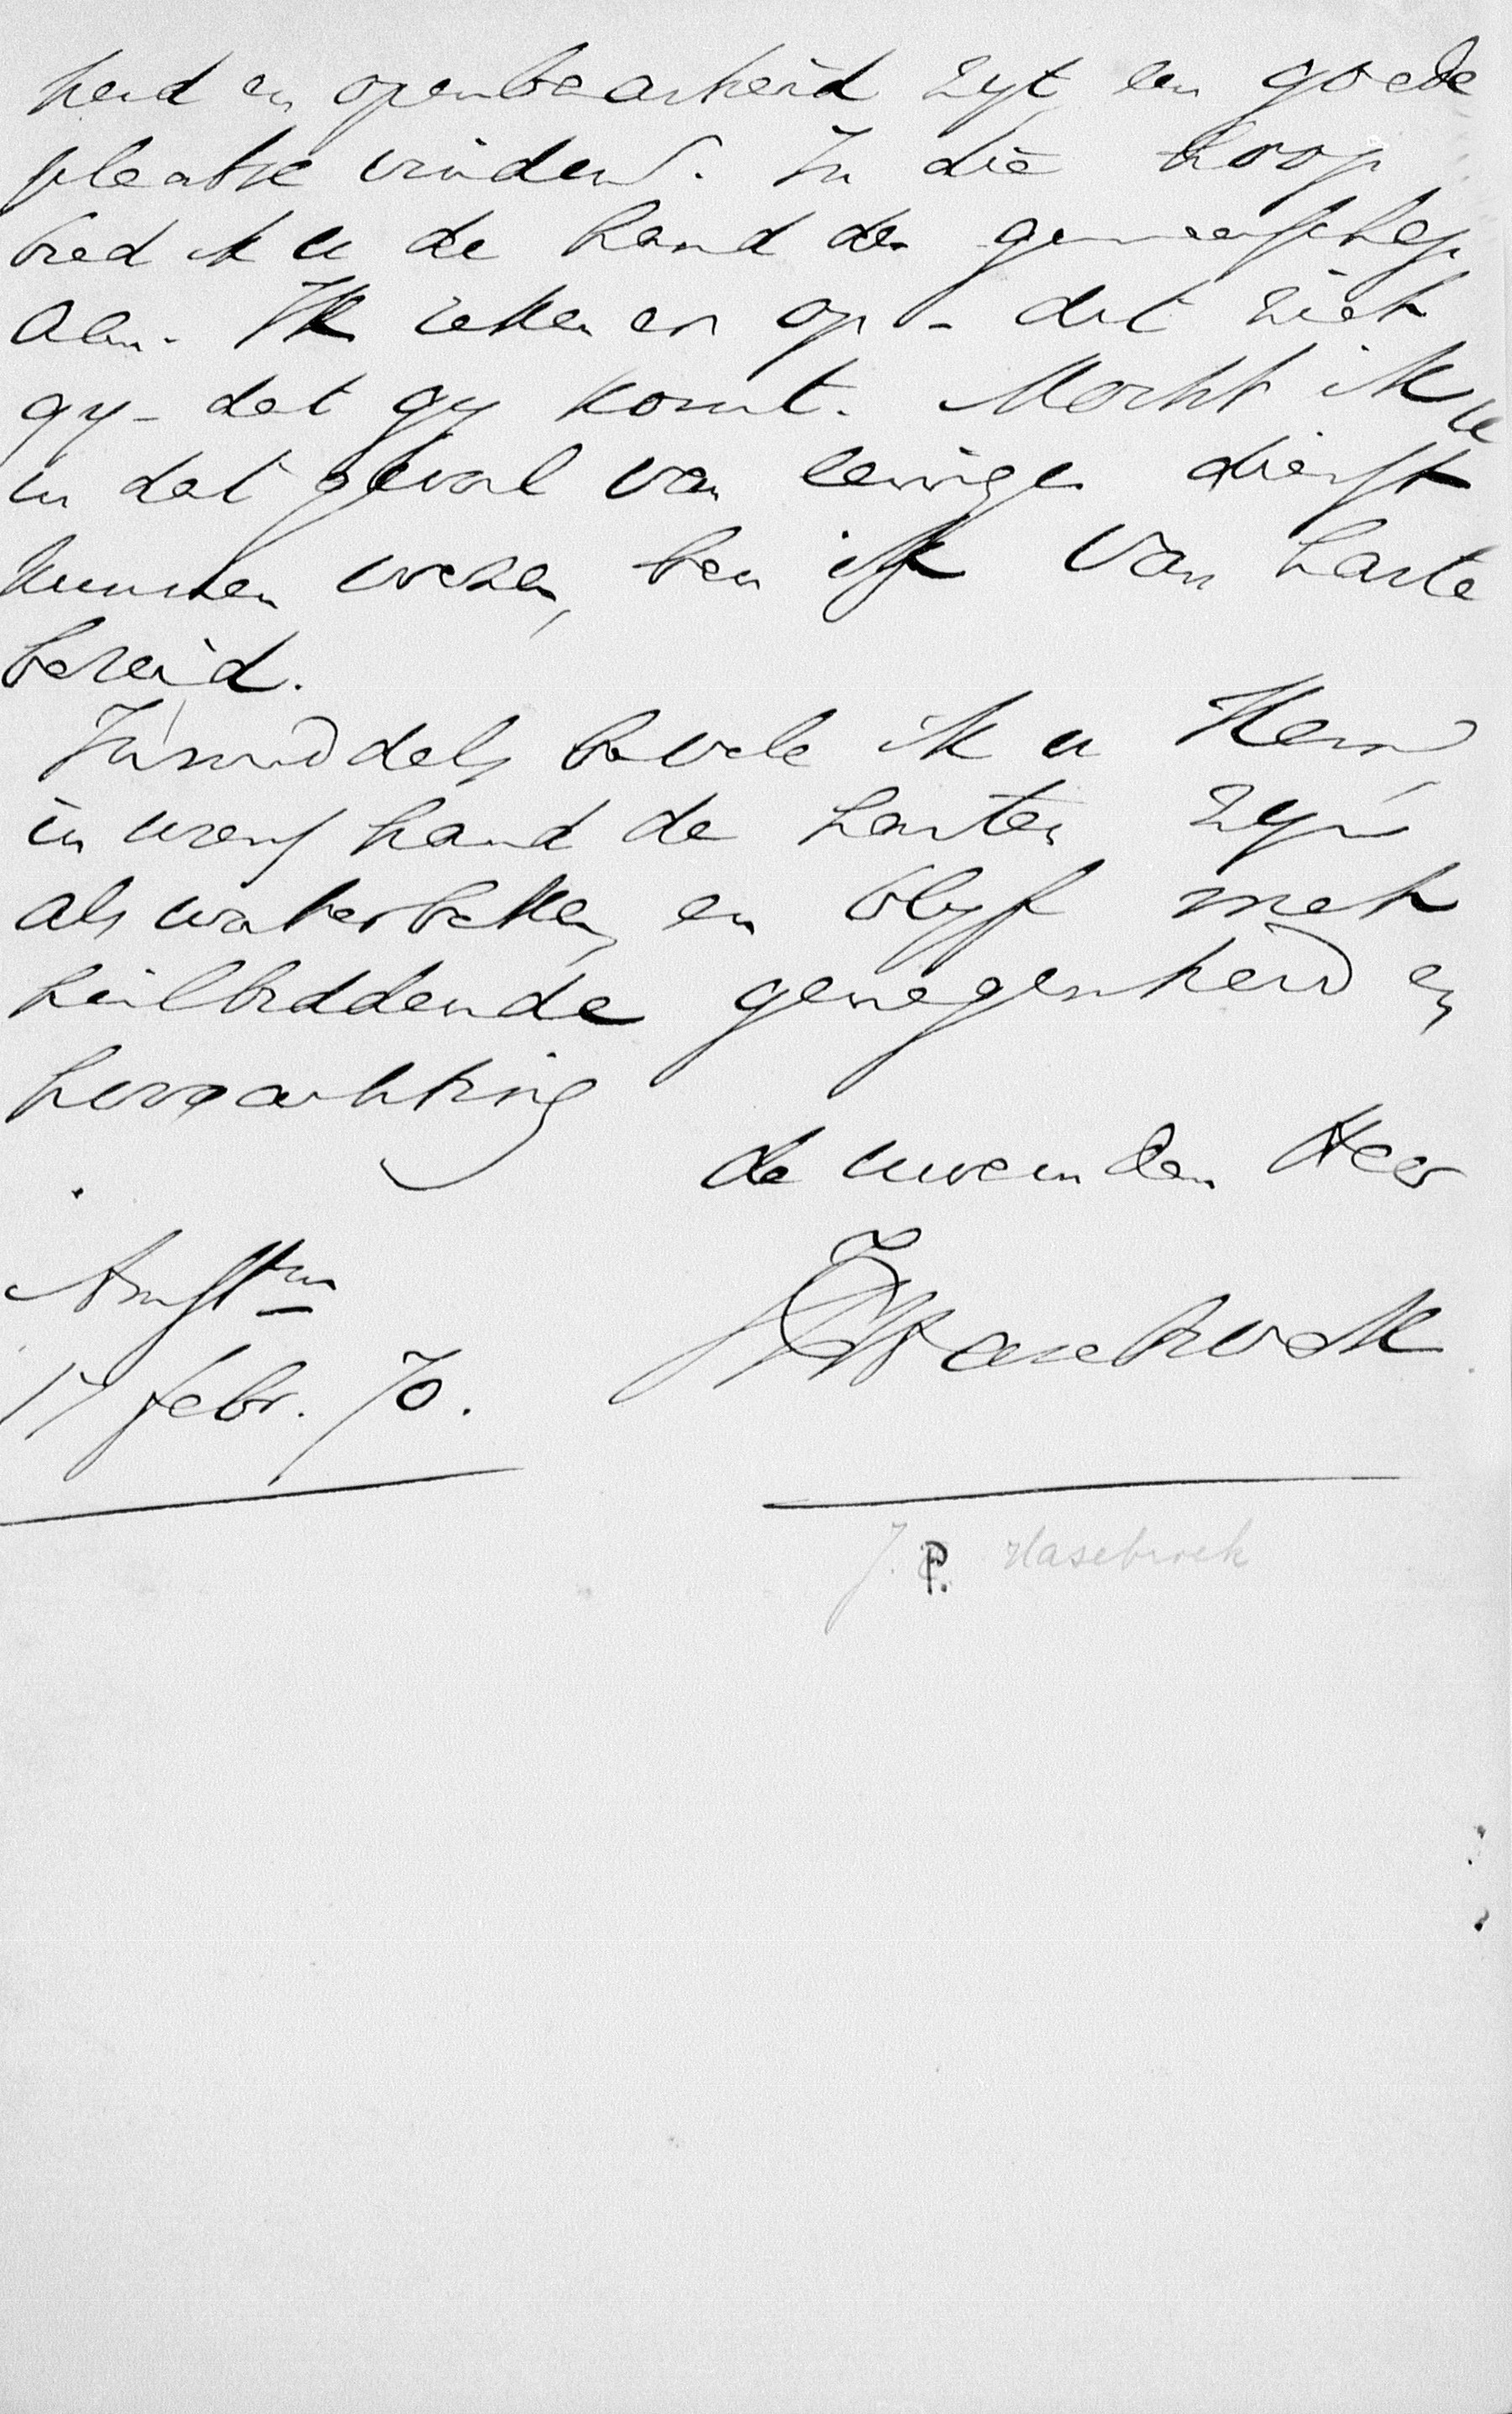 heid en openbaarheid zyt, een goede
plaatse vinden. In die hoop
bied ik u de hand der gemeenschap
aan. Ik reken er op - dit ziet
gy - dat gy komt. Mocht ik u
in dat geval van eenige dienst
kunnen wezen, ben ik van harte
bereid.
Inmiddels bevele ik u Hem
in wiens hand de harten zyn
als waterbeken, en blyf met
heilbiddende genegenheid en
hoogachting
de uwe in den Heer
Amstm
17 febr. 70.
JPHasebroek
J. P. Hasebroek